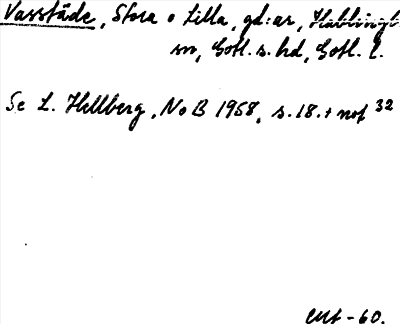 Vasstäde, Stora o Lilla, gd:ar, Hablingbo
sn, Gotl. s. hd, Gotl. l.
Se L. Hellberg, NoB 1958, s. 18. + not 32
-60.